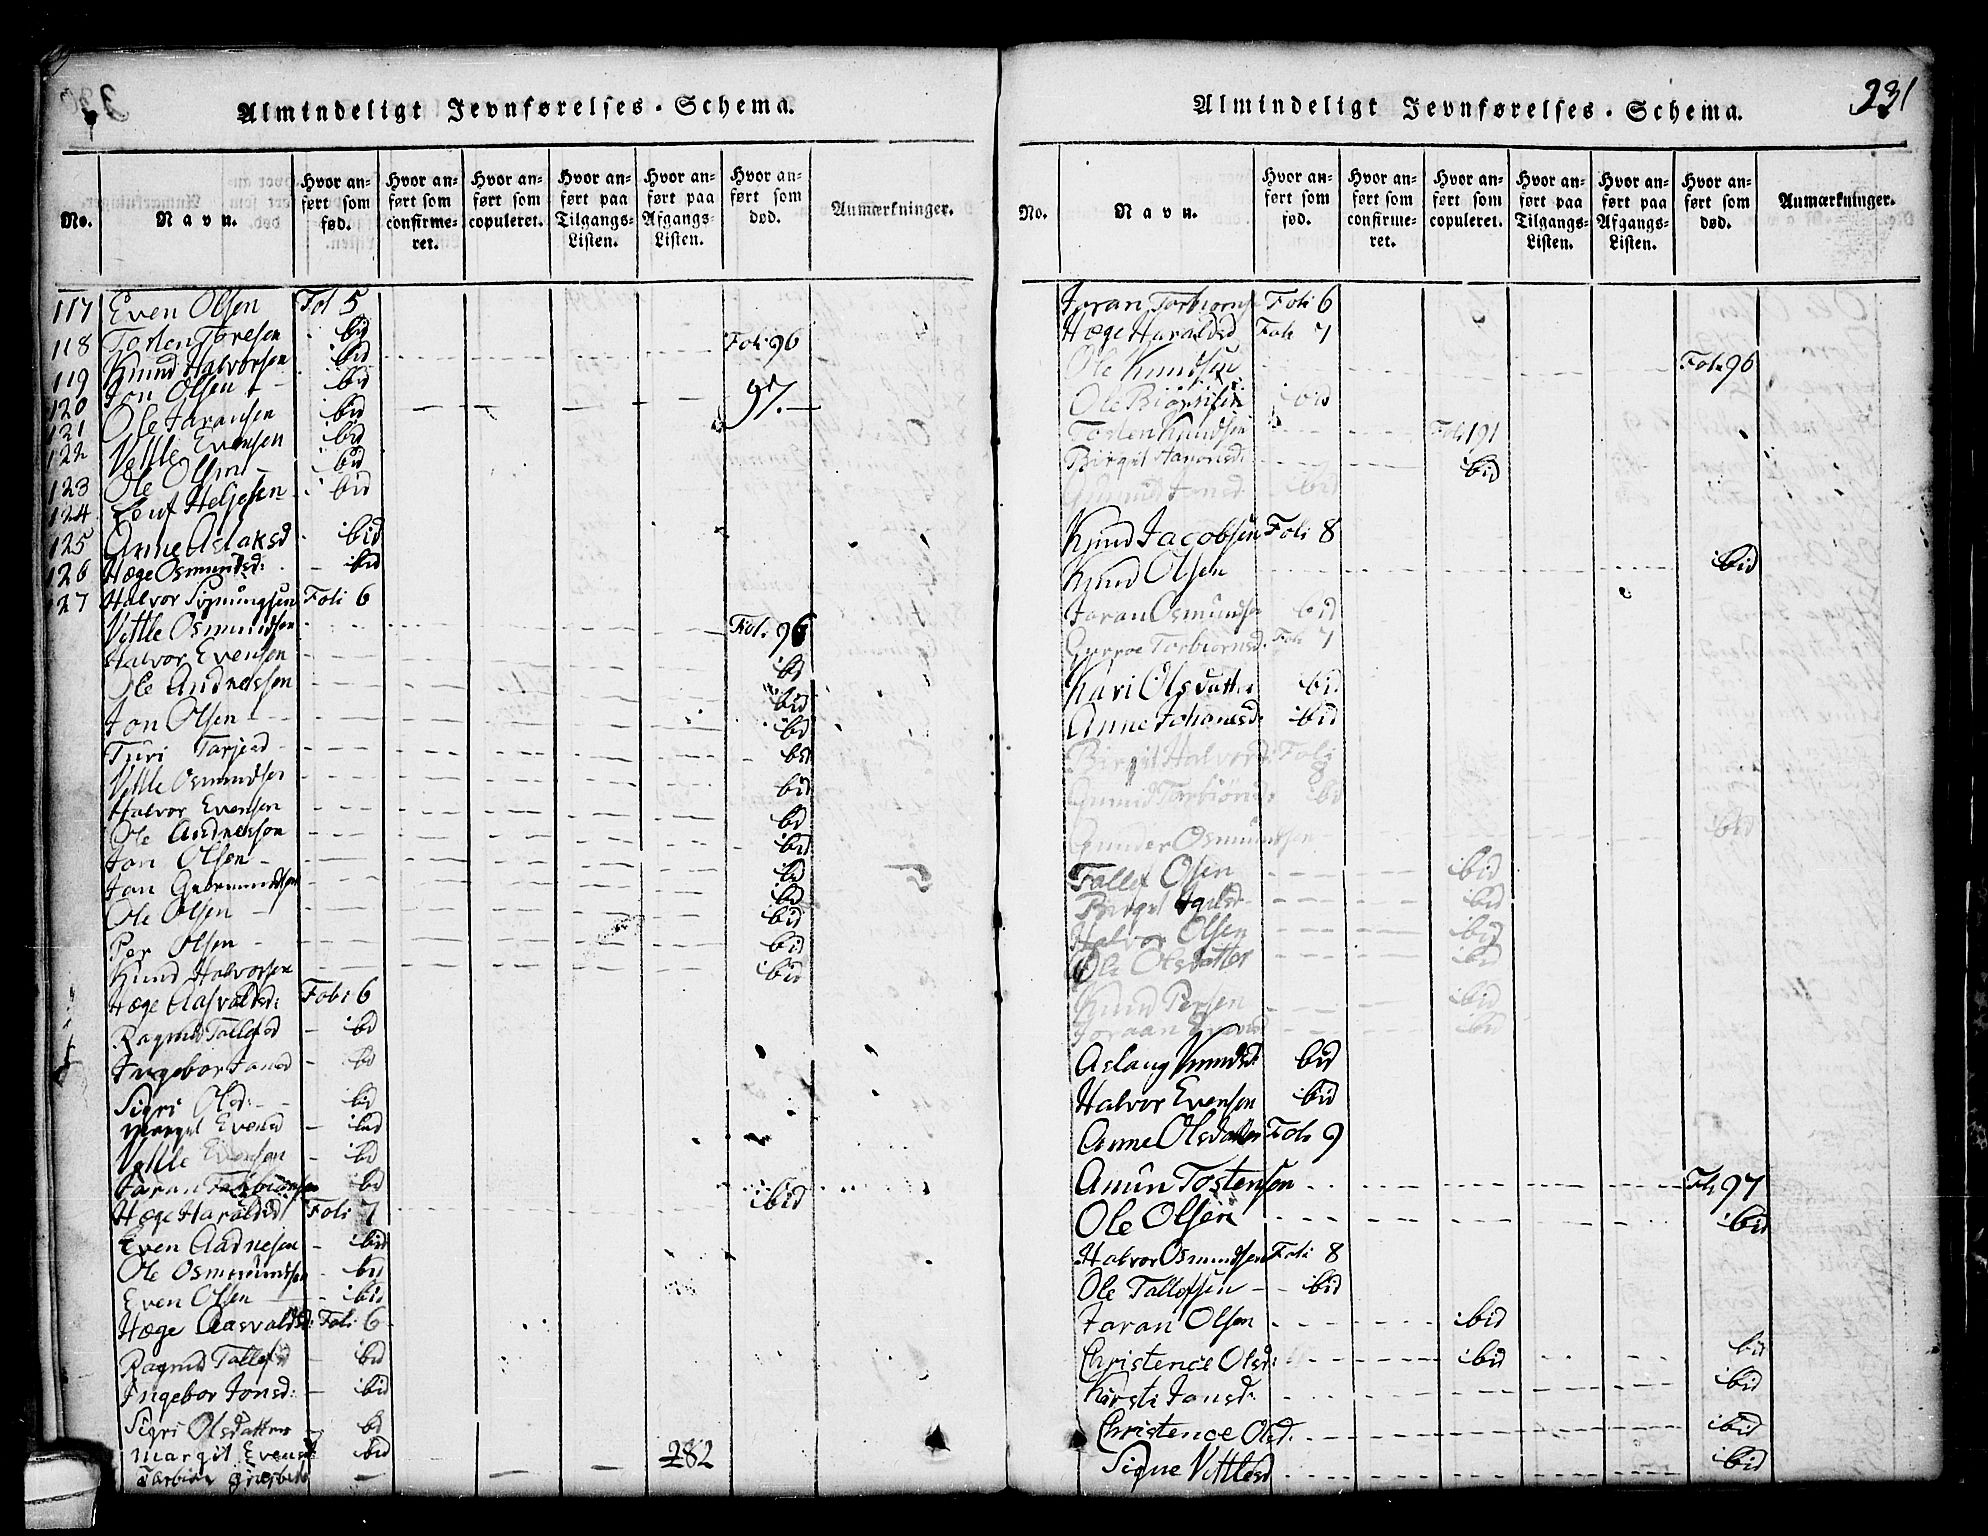 Almindeligt Jevnførelses-Schema.
No. Navn. Hvor anført som fød. Hvor anført som confirmeret. Hvor anført som copuleret. Hvor anført paa Tilgangs-Listen. Hvor anført paa Afgangs-Listen. Hvor anført som død. Anmærkninger.
117 Even Olsen Fol 5
118 Tosten Toresen ibid
119 Knud Halvorsen ibid Foli 96
120 Jon Olsen ibid
121 Ole Jaransen ibid 97.
122 Vettle Evensen ibid
123 Ole Olsen ibid
124 Leuf Heljesen ibid
125 Anne Aslaksd ibid
126 Hæge Osmundsd: ibid
127 Halvor Foli 6
Vettle Osmundsen Fol: 96
Halvor Evensen ibd
Ole Andnessen ibid
Jon Olsen ibd
Turi Tarjesd ibd
Vettle Osmundsen ibid
Halvor Evensen ibd
Ole Andnesson ibid
Jon Olsen ibd
Jon ibid
Ole Olsen ibid
Per Olsen ibid
Knud Halvorsen ibid
Hæge Aasvaldsd: Foli 6
Ragnild Tallefsd ibd
Ingebor Jonsd ibd
Sigri Olsd: ibid
Margit Evensd ibid
Vettle Evensen ibd
Jaran Torbiornsen ibd
Hæge Haraldsd Foli 7 ibid
Even Aadnesen ibid
Ole Osmundsen ibid
Even Olsen ibid
Hæge Aasvaldsd: Foli 6
Ragnild Tallefsd ibid
Ingebor Jonsd: ibid
Sigri Olsdatter ibd
Margit Evensd ibid 282
Almindeligt Jevnførelses-Schema.
231
No. Navn. Hvor anført som fød. Hvor anført som confirmeret. Hvor anført som copuleret. Hvor anført paa Tilgangs-Listen. Hvor anført paa Afgangs-Listen. Hvor anført som død. Anmærkninger.
Joran Torbiorns Foli 6
Hæge Haraldsd Foli 7
Ole Knudsen Foli 96
Ole ibid
Tosten Knudsen Foli 191
Birgit ibid
Gunnild Jonsd ibid
Knud Jacobsen Foli 8
Knud Olsen ibid
Jaran Osmundsen ibid
Gurroe Torbiornsd. Foli 7
Kari Olsdatter ibid
Anne Johannesd: ibid
Birgit Halvorsd: Foli 8
Gunnild Torbiönsd ibd
Gunder Osmundsen ibid
Tallef Olsen ibid
Birgit ibid
Halvor Olsen ibid
Ole Olsdatter ibid
Knud Persen ibid
Joraan ibid
Aslaug Knudsd: ibid
Halvor Evensen ibid
Anne Olsdatter Foli 9
Amun Tostensen Foli 97
Ole Olsen ibid
Halvor Osmundsen Foli 8
Ole Tallefsen ibid
Jaran Olsen ibid
Christence Olsd: ibid ibid
Kirsti Jansd: ibid
Christence Olsd. ibid
Signe Vettlesd ibid